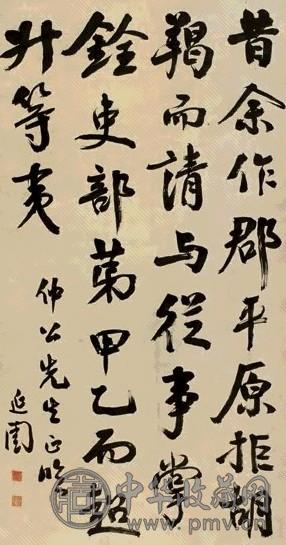 昔余作郡平原拒胡
羯而請与從事掌
銓吏部第甲乙而超
升等夷
仲公先生正临
延闓
中华收藏网
www.pmv.cn